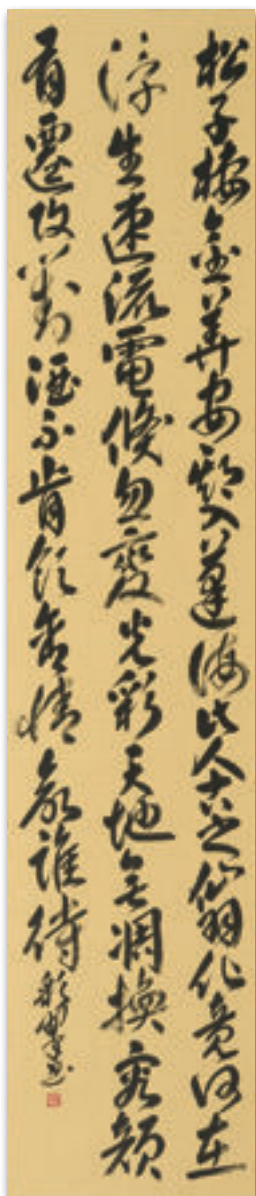 松子棲金華安期入蓬海此人古之仙羽化竟何在
浮生速流電倏忽變光彩天地無凋換容顏
有遷改對酒不肯飲含情欲誰待